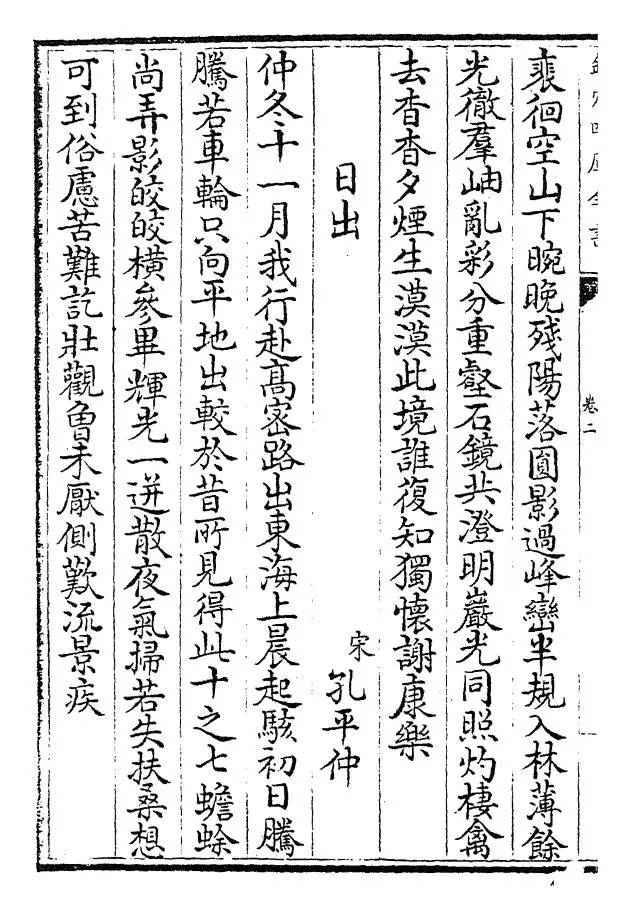 欽定四庫全書
卷二
裵徊空山下晼晚殘陽落圓影過峰巒半規入林薄餘
光徹羣岫亂彩分重壑石鏡共澄明巖光同照灼棲禽
去杳杳夕煙生漠漠此境誰復知獨懷謝康樂
日出
宋 孔平仲
仲冬十一月我行赴高密路出東海上晨起駭初日騰
騰若車輪只向平地出較於昔所見得此十之七蟾蜍
尚弄影皎皎橫參畢輝光一迸散夜氣掃若失扶桑想
可到俗慮苦難訖壯觀曾未厭側歎流景疾